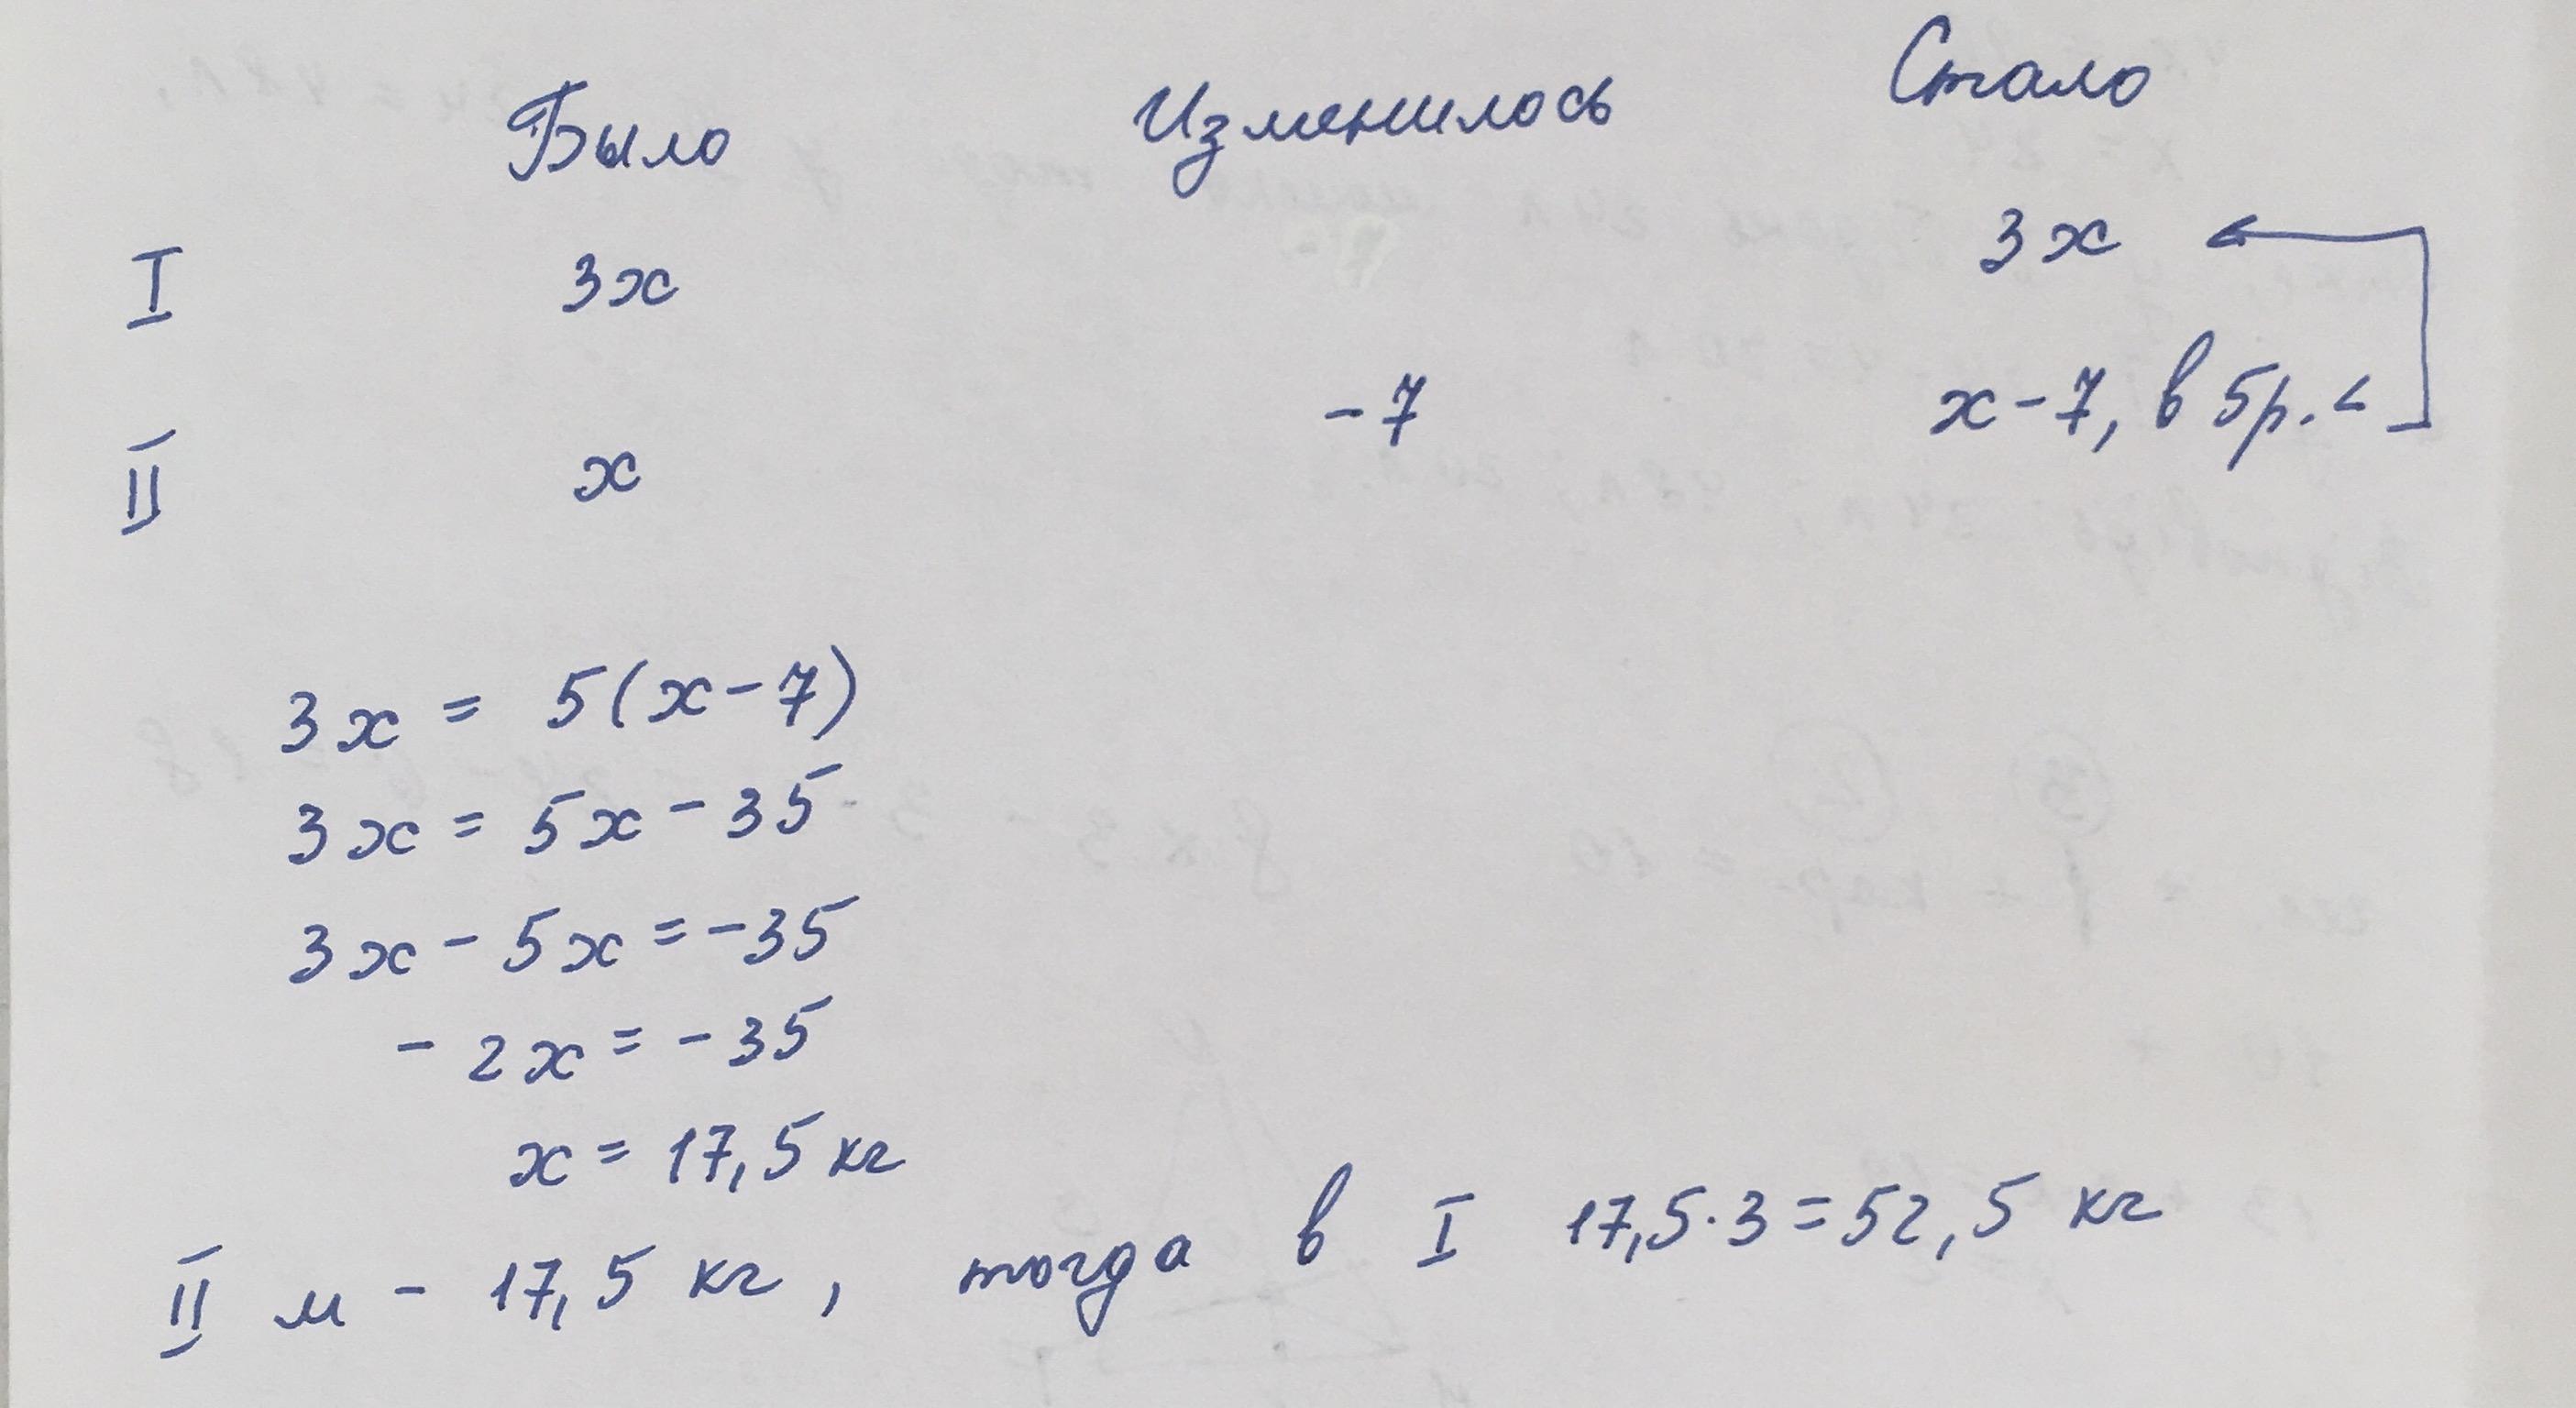 Было Изменилось Стало
I 3х 3х
II х -7 х-7, в 5р. <
3х = 5(х-7)
3х = 5х - 35
3х - 5х = -35
- 2х = - 35
х = 17,5 кг
II м - 17,5 кг, тогда в I 17,5·3=52,5 кг